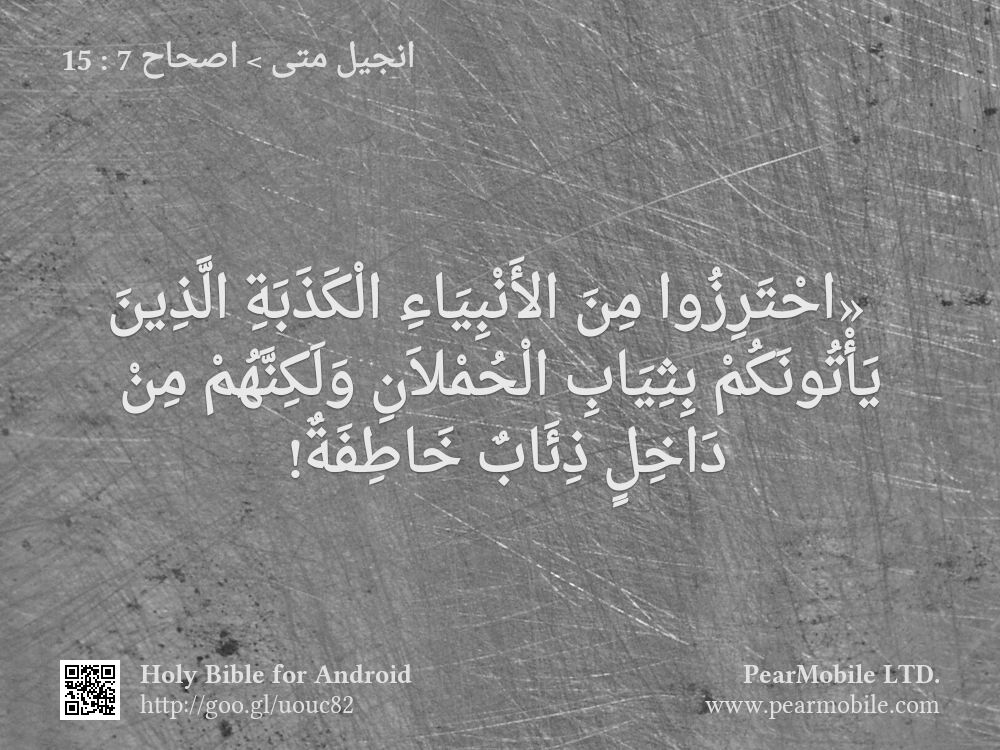 انجيل متى > اصحاح 7 : 15
«احْتَرِزُوا مِنَ الأَنْبِيَاءِ الْكَذَبَةِ الَّذِينَ
يَأْتُونَكُمْ بِثِيَابِ الْحُمْلاَنِ وَلَكِنَّهُمْ مِنْ
دَاخِلٍ ذِئَابٌ خَاطِفَةٌ!
Holy Bible for Android
http://goo.gl/uouc82
PearMobile LTD.
www.pearmobile.com